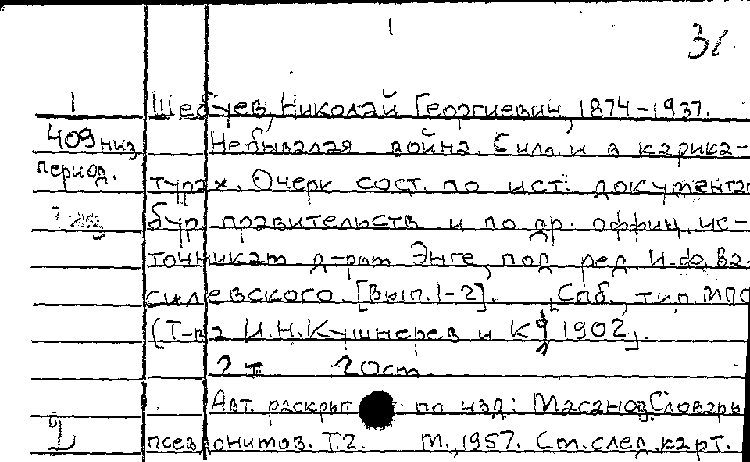 1
32
1 Шебуев, Николай Георгиевич, 1874-1937.
409 низ Небывалая война. Были и в карика-
период. турах. Очерк сост. по ист. документам
бур правительств и по др. оффиц. ис-
точникам д-ром Энге, под ред И. де Ва-
силевского. [Вып. 1-2]. Спб., тип МПС
(Т-ва И.Н. Кушнерев и К°), 1902.
2 т 20 см.
Авт. раскрыт по изд: Масанов. Словарь
2 псевдонимов. Т. 2. М., 1957. См. след. карт.